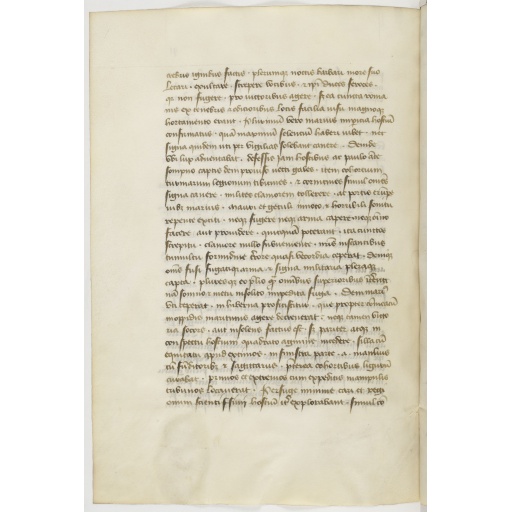 crebris ignibus factis · plerumque noctis barbari more suo
letari · exultare · strepere vocibus · et ipi duces feroces ·
qr non fugere · pro victoribus agere · S; ea cuncta roma
nis ex tenebris editioribus locis facilia visu magnoq;
hortamento erant · Plurimum vero marius impicia hostium
confirmatus · quam maximum silencium haberi iubet · ne
signa quidem uti per vigilias solebant canere · Deinde
ubi lux adventabat · defessis iam hostibus ac paulo ante
sompno captis de improviso vectigales · item cohortium
turmarum legionum tibicines · simul omnes
signa canere · milites clamorem tollere · ac portis erumpe
iubet marius · mauri et getuli ignoto et horribili sonitu
repente exciti · neq; fugere neq; arma capere neq; omnino
facere aut providere · quicquam poterant · ita cunctos
strepitu · clamore nullo subveniente · nris instantibus
tumultu formidine terrore quasi vecordia ceperat · Deniq;
omnes fusi fugatiq; arma et signa militaria pleraq;
capta · pluresq; eo prelio quam omnibus superioribus interempti
nam somno et metu insolito impedita fuga · Dein marius
uti ceperat · in hiberna proficiscitur · que propter commeatum
in oppidis maritimis agere decreverat · neq; tamen victo
ria socors · aut insolens factus est · S; pariter atq; in
conspectu hostium quadrato agmine incedere · silla cum
equitatu apud extimos · in sinistra parte · a · manlius
cum funditoribus et sagittariis · preterea cohortibus ligurum
curabat · primos et extremos cum expeditis manipulis
tribunos locaverat · Perfuge minime cari et regi
onum scientissimi hostium iter explorabant · simul con